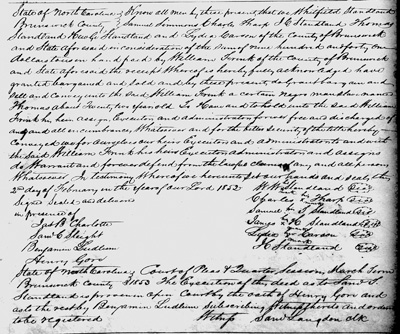 State of North Carolina } Know all men by these presents, that we Whitfield Standland
Brunswick County } Samuel Simmons Charles Tharp J C Standland Thomas
Standland Standland and Lydia Carson of the County of Brunswick
and State aforesaid in consideration of the sum of nine hundred and forty one
dollars to us in hand paid by William Frink of the County of Brunswick
and State aforesaid the receipt Whereof is hereby fully acknowledged have
granted bargained and sold and by these presents do grant bargain and
sell and convey unto the said William Frink a certain Negro man the name
Thomas about Twenty two years old To Have and to hold unto the said William
Frink his heirs assigns Executors and administrators forever free and discharged of
any and all incumbrances Whatsoever and for the better security of the title hereby
conveyed we for ourselves our heirs Executors and administrators and with
the said William Frink his heirs Executors administrators and assigns
do Warrant and forever defend from the lawful claims of any and all persons
Whatsoever In testimony Whereof we hereunto set our hands and seals, this
2nd day of February in the year of our Lord 1852
Signed Sealed and delivered
in presence of
W W Standland Seal
Charles Tharp Seal
Samuel Standland Seal
James Standland Seal
Carson Seal
J C Standland Seal
Charlotte
Saml C Sleight
Benjamin Ludlum
Henry Gore
State of North Carolina } Court of Pleas & Quarter Sessions, March Term
Brunswick County } 1853 The Execution of the deed as to Saml
Standland is proven in open Court by the oath of Henry Gore and
as to the rest by Benjamin Ludlum subscribing Witness thereto and ordered
to be registered Witness Saml Langdon Clk